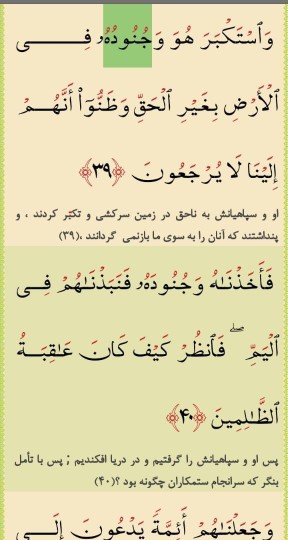 وَٱسْتَكْبَرَ هُوَ وَجُنُودُهُۥ فِــــــى
ٱلْأَرْضِ بِغَيْرِ ٱلْحَقِّ وَظَنُّوٓا۟ أَنَّهُــمْ
إِلَيْنَا لَا يُرْجَعُونَ ﴿۳۹﴾
او و سپاهیانش به ناحق در زمین سرکشی و تکبّر کردند ، و
پنداشتند که آنان را به سوی ما بازنمی گردانند ،(۳۹)
فَأَخَذْنَـٰهُ وَجُنُودَهُۥ فَنَبَذْنَـٰهُمْ فِــى
ٱلْيَمِّ ۖ فَٱنظُرْ كَيْفَ كَانَ عَـٰقِبَــةُ
ٱلظَّـٰلِمِينَ ﴿۴۰﴾
پس او و سپاهیانش را گرفتیم و در دریا افکندیم ; پس با تأمل
بنگر که سرانجام ستمکاران چگونه بود ؟(۴۰)
وَجَعَلْنَـٰهُمْ أَئِمَّةً يَدْعُونَ إِلَــى